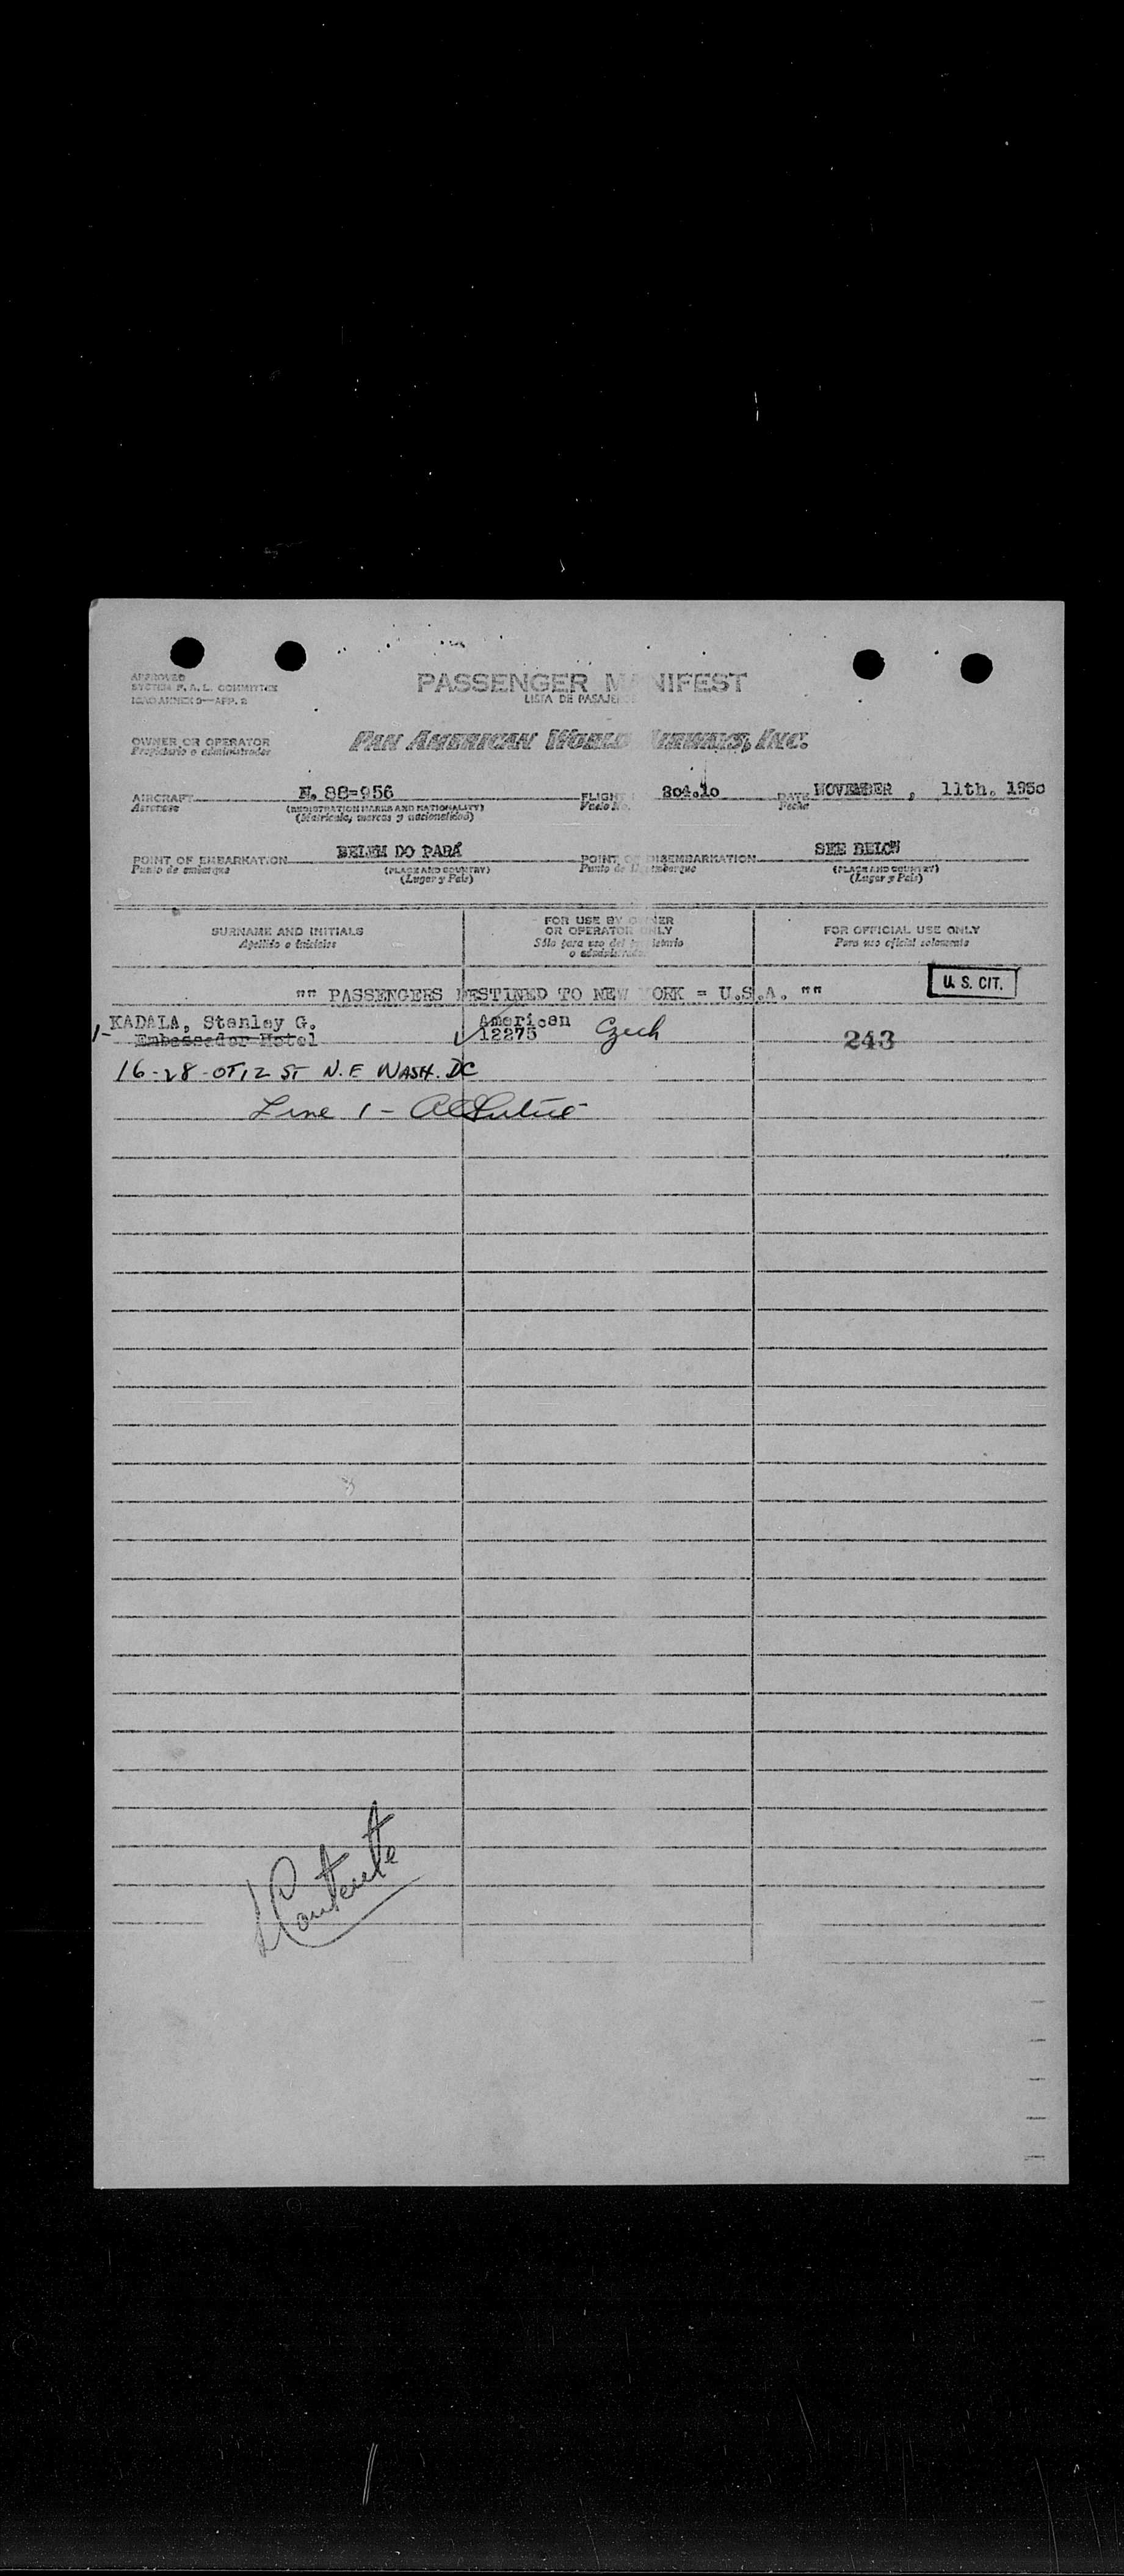 APPROVED
SYSTEM F. A. L. COMMITTEE
ICAO ANNEX 9—APP. 2
PASSENGER M NIFEST
LISTA DE PASAJE
OWNER OR OPERATOR
Propietario o administrador
PAN AMERICAN WORLD AIRWAYS, INC.
AIRCRAFT N. 88-956 FLIGHT 204.10 DATE NOVEMBER , 11th. 1950
Aeronave (REGISTRATION MARKS AND NATIONALITY) Vuelo No. Fecha
(Matrícula, marcas y nacionalidad)
POINT OF EMBARKATION BELEM DO PARÁ POINT OF DISEMBARKATION SEE BELOW
Punto de embarque (PLACE AND COUNTRY) Punto de desembarque (PLACE AND COUNTRY)
(Lugar y País) (Lugar y País)
SURNAME AND INITIALS
Apellido e iniciales
FOR USE BY OWNER
OR OPERATOR ONLY
Sólo para uso del propietario
o administrador
FOR OFFICIAL USE ONLY
Para uso oficial solamente
"" PASSENGERS DESTINED TO NEW YORK = U.S.A. ""
U. S. CIT.
1- KADALA, Stanley G. American Czech
Embassador Hotel 12275 243
16-28-OT 12 ST N.E WASH. DC
Line 1 -